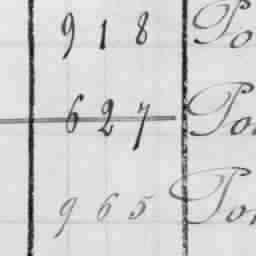 918 Po
627 Por
965 Por